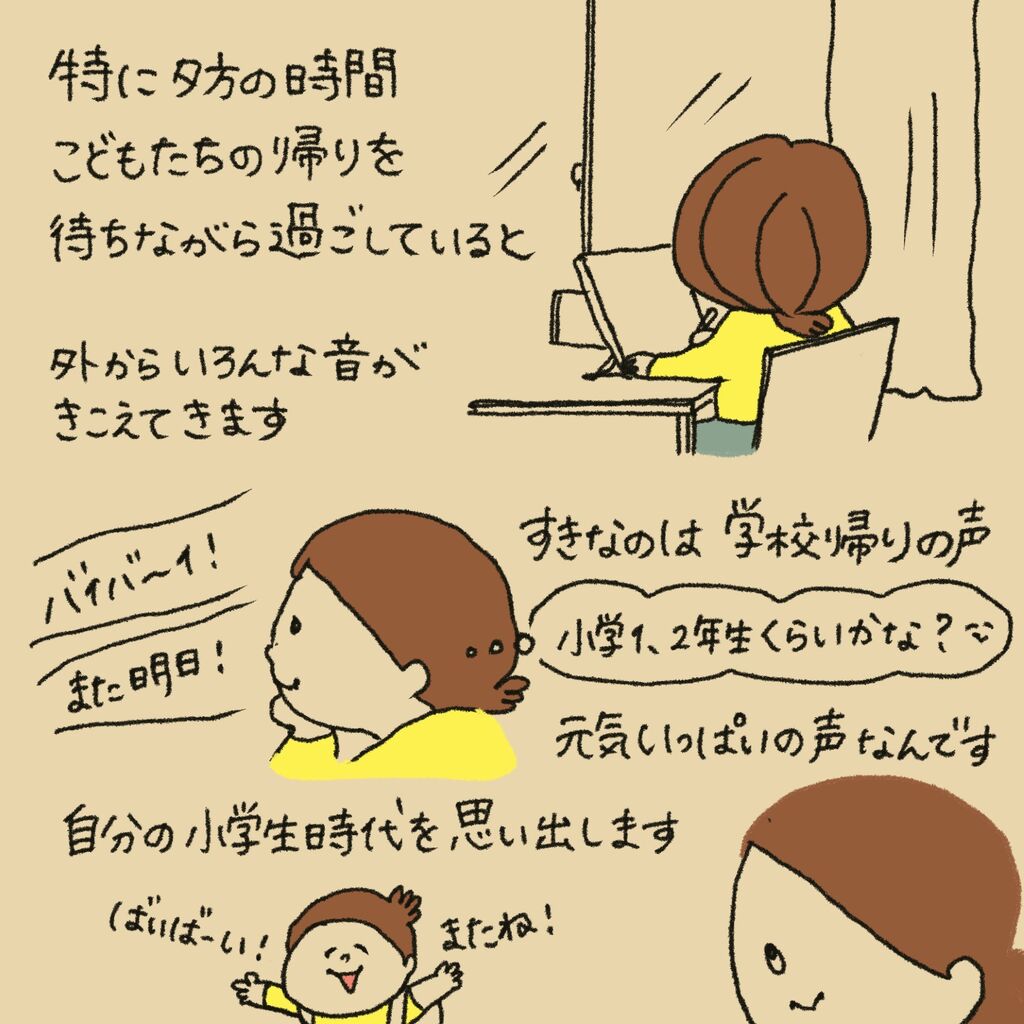 特に夕方の時間
こどもたちの帰りを
待ちながら過ごしていると
外からいろんな音が
きこえてきます
バイバ〜イ！
また明日！
すきなのは 学校帰りの声
小学1、2年生くらいかな？
元気いっぱいの声なんです
自分の小学生時代を思い出します
ばいばーい！
またね！